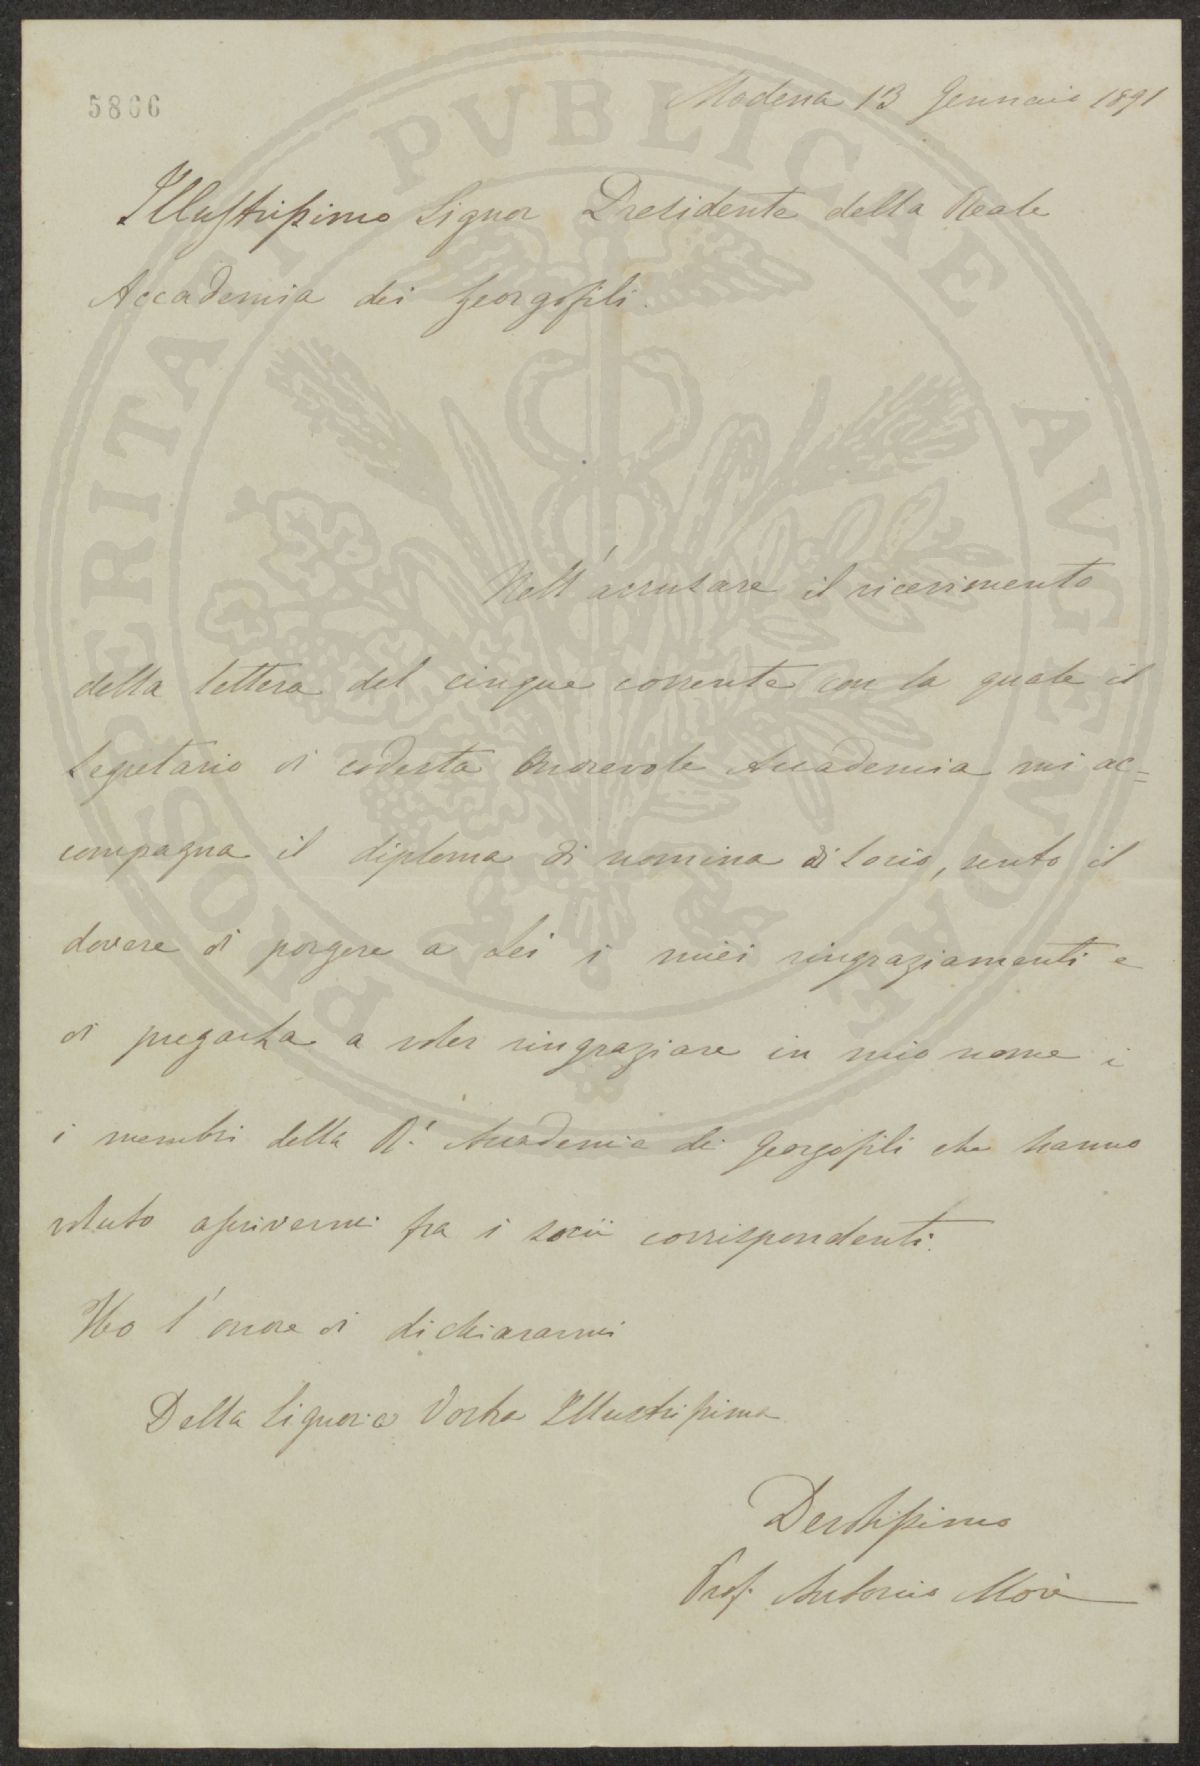 5866
Modena 13 Gennaio 1891
Illustrissimo Signor Presidente della Reale
Accademia dei Georgofili.
Nell'accusare il ricevimento
della lettera del cinque corrente con la quale il
Segretario di codesta Onorevole Accademia mi ac=
compagna il diploma di nomina di Socio, sento il
dovere di porgere a Lei i miei ringraziamenti e
di pregarla a voler ringraziare in mio nome i
i membri della R.ª Accademia dei Georgofili che hanno
voluto ascrivermi fra i socii corrispondenti.
Ho l'onore di dichiararmi
Della Signoria Vostra Illustrissima
Devotissimo
Prof. Antonio
PROSPERITATI PVBLICAE AVGENDAE